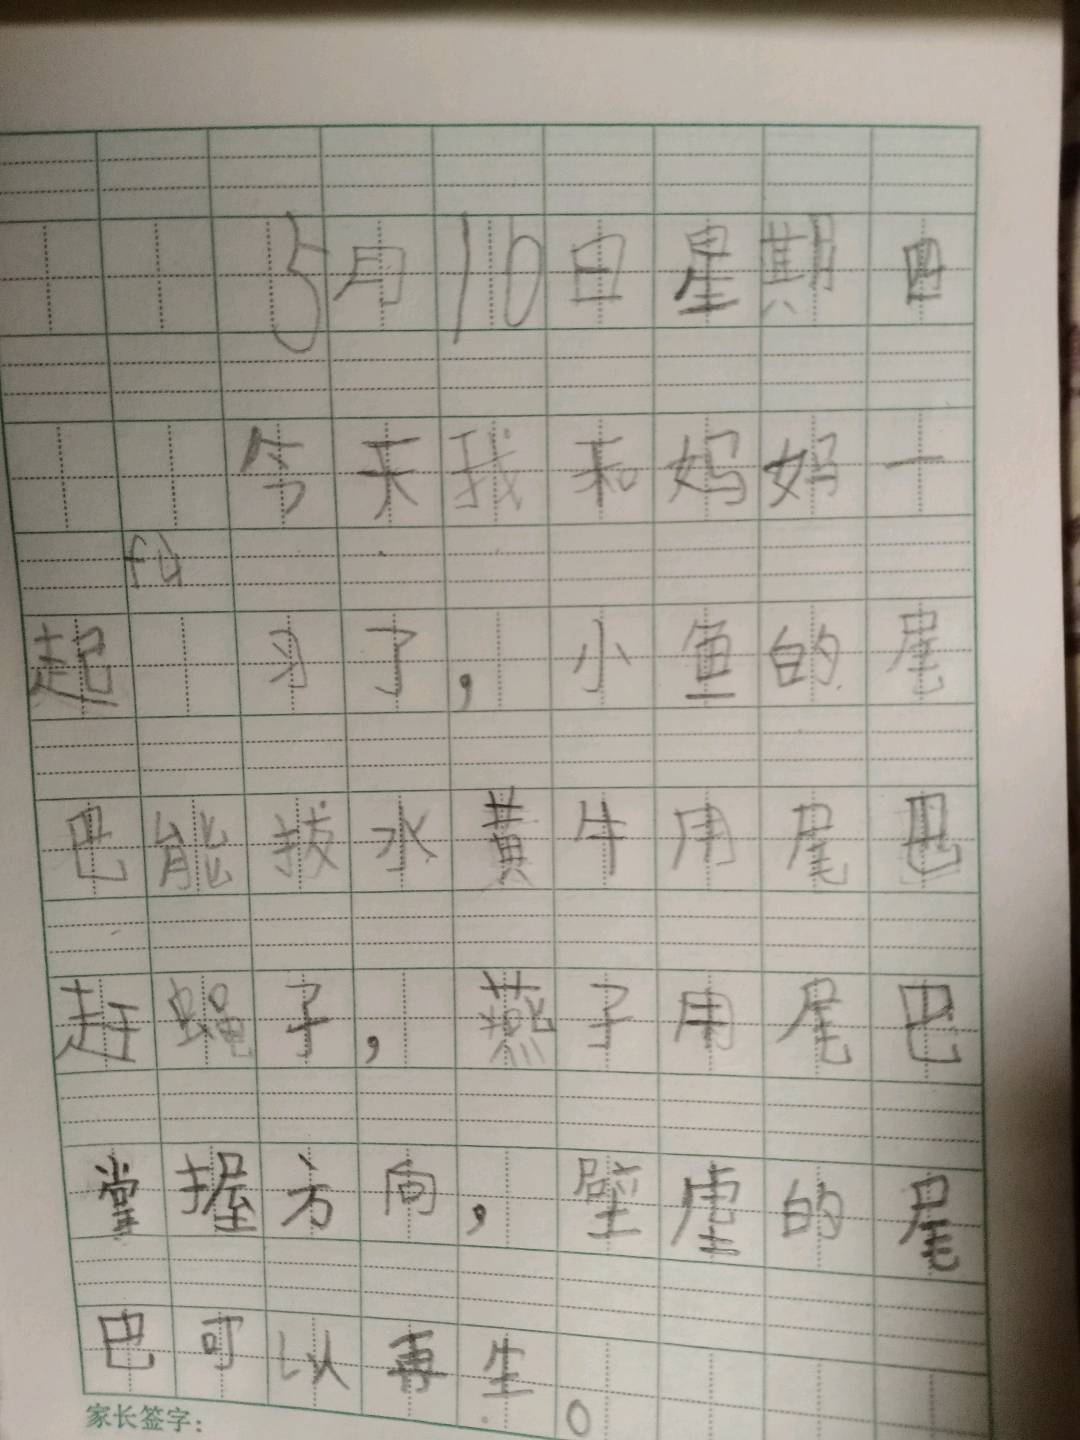 5月10日星期四
今天我和妈妈一
fù
起 习了，小鱼的尾
巴能拔水黄牛用尾巴
赶蝇子，燕子用尾巴
掌握方向，壁虎的尾
巴可以再生。
家长签字：